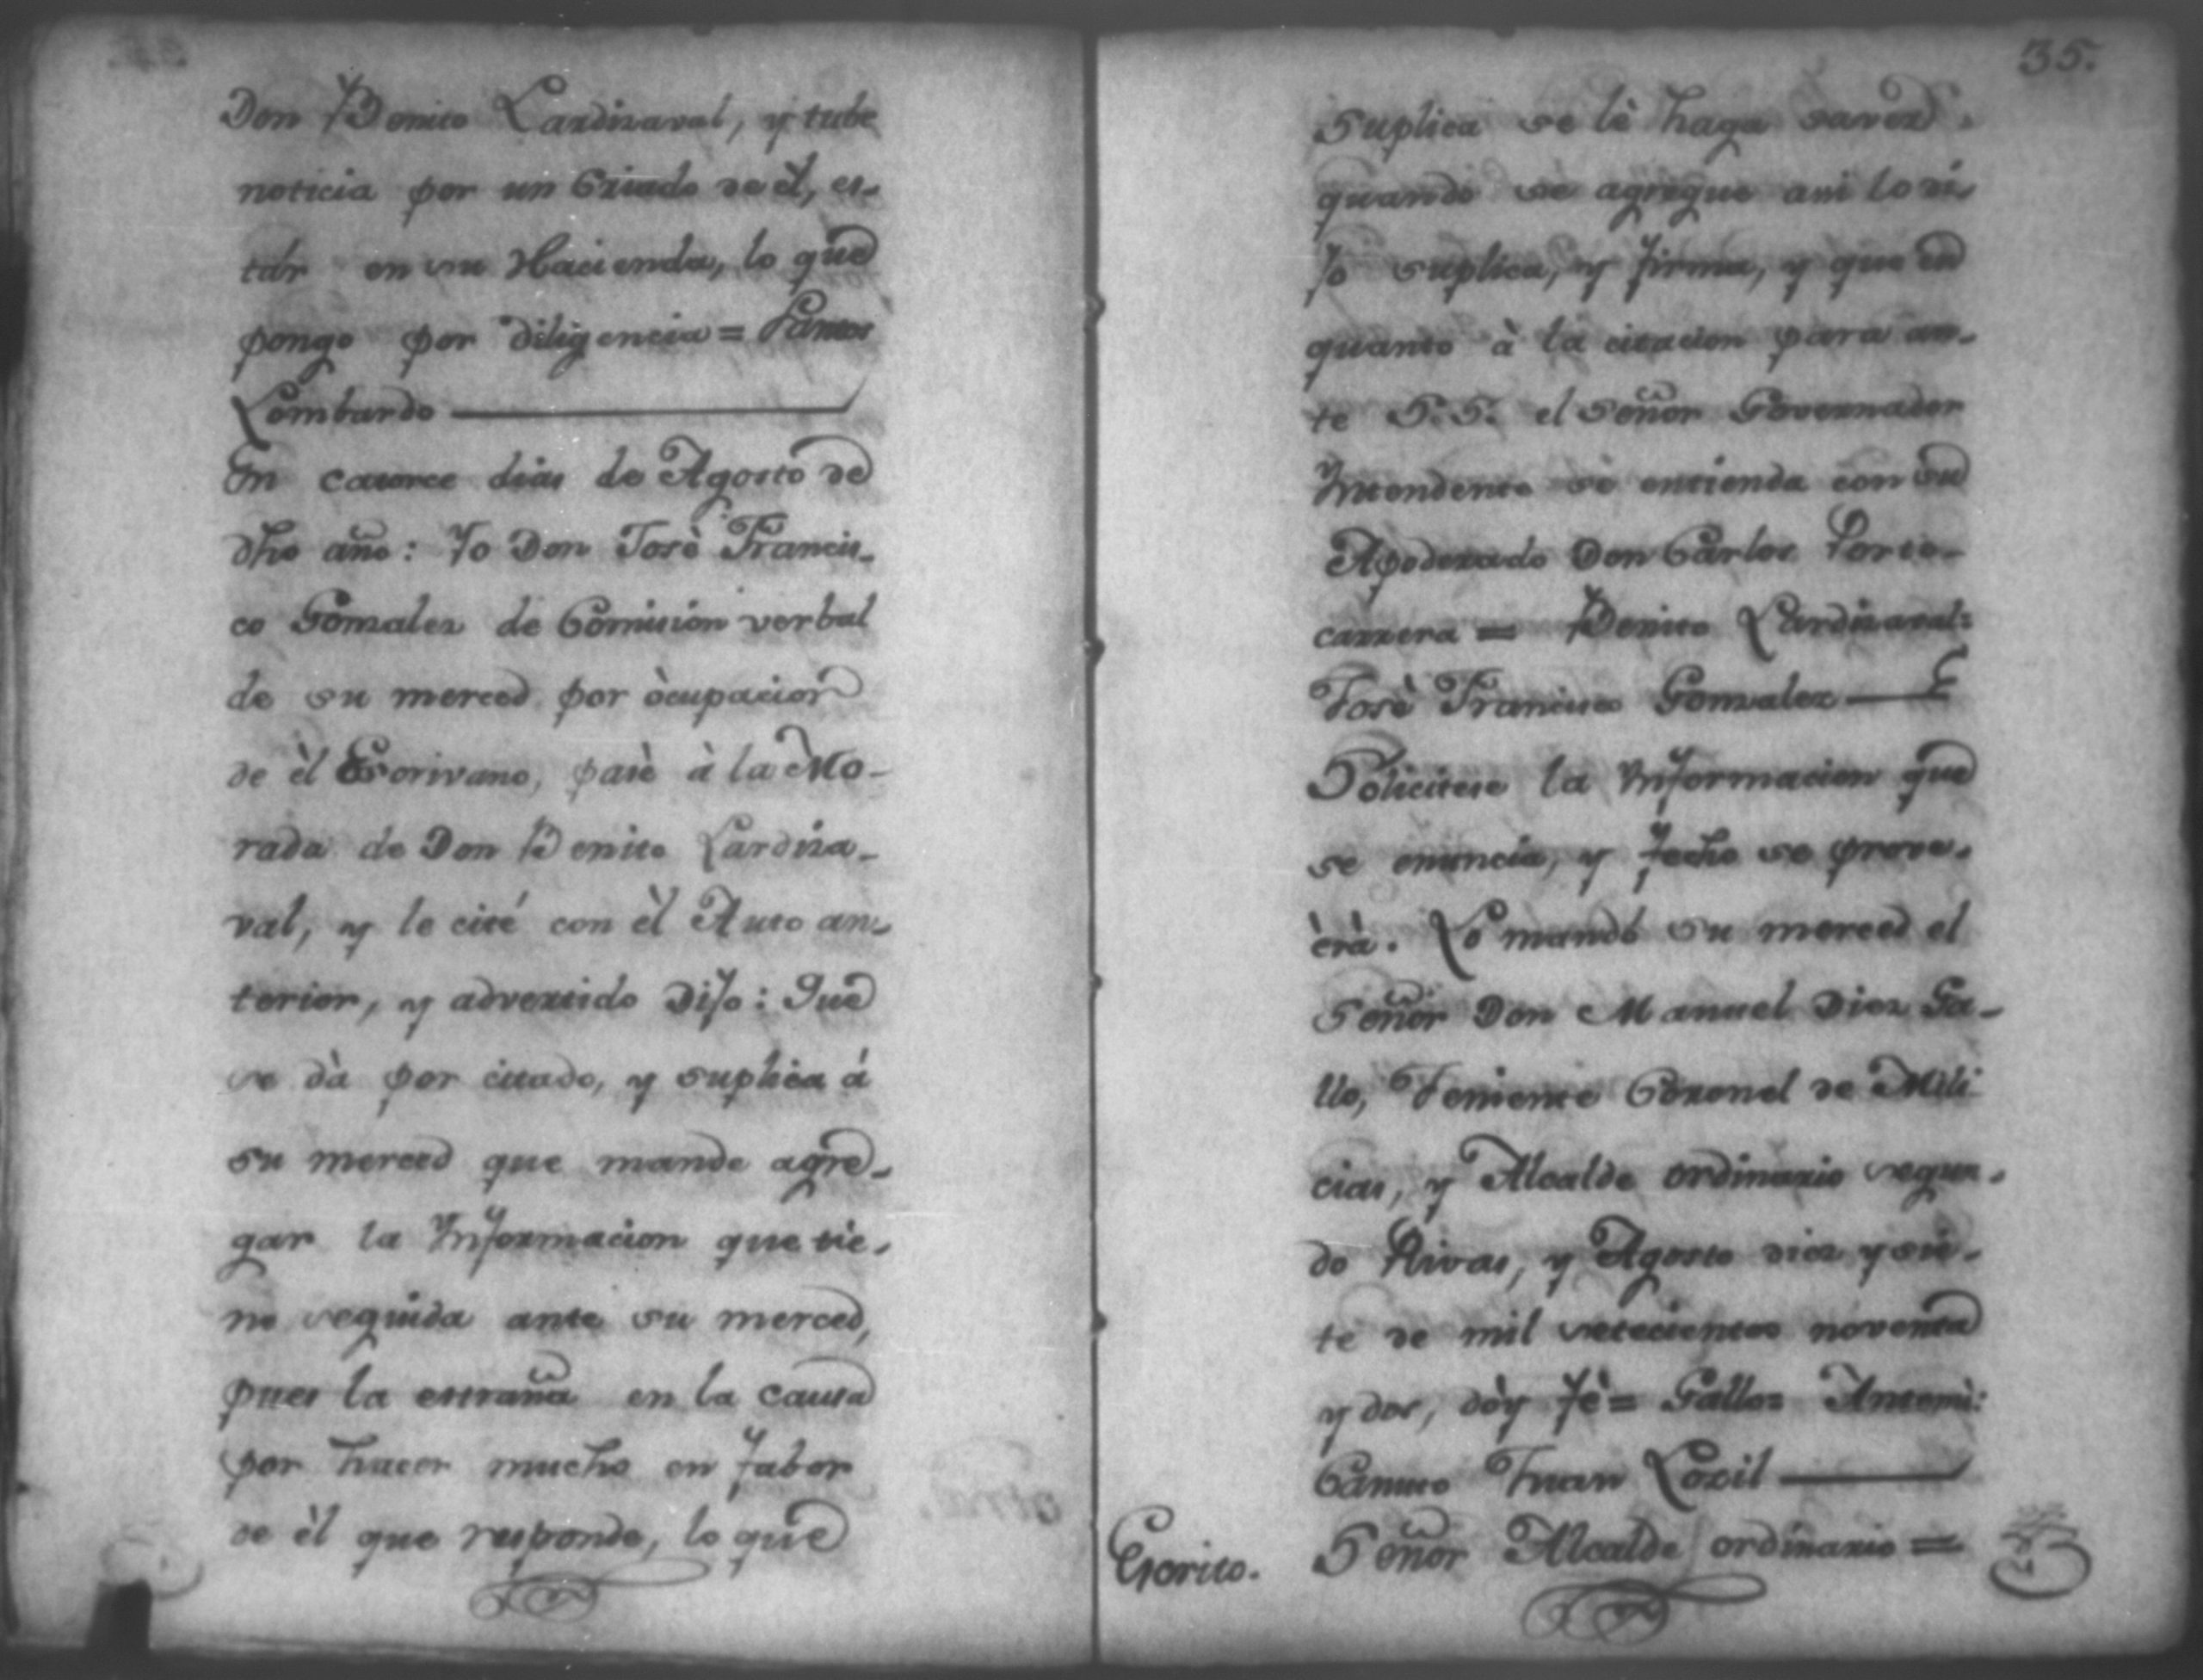 Don Benito Lardizaval, y tube
noticia por un Criado de èl, es-
tàr en su Hacienda, lo que
pongo por diligencia = Santos
Lombardo
En catorce dias de Agosto de
dho año: Yo Don Josè Francis-
co Gonzalez de Comision verbal
de su merced por òcupacion
de èl Escrivano, pasè à la Mo-
rada de Don Benito Lardiza-
val, y le cité con èl Auto an-
terior, y advertido Dijo: Que
se dà por citado, y suplica á
su merced que mande agre-
gar la Informacion que tie-
ne seguida ante su merced,
pues la estraña en la causa
por hacer mucho en fabor
de èl que responde, lo que
35.
Suplica se lè haga saver
quando se agregue asi lo di-
jo suplica, y firma, y que en
quanto à la citacion para an-
te S.S. el Señor Governador
Yntendente se entienda con su
Apoderado Don Carlos Porto-
carrera = Benito Lardizaval=
Josè Francisco Gonzalez
Solicitese la Informacion que
se enuncia, y fecho se prove-
èrà. Lo mandò su merced el
Señor Don Manuel Diez Ga-
llo, Teniente Coronel de Mili
cias, y Alcalde ordinario segun-
do Rivas, y Agosto diez y sie-
te de mil setecientos noventa
y dos, dòy fè = Gallo= Antemi:
Canuto Juan Loxil
Escrito. Señor Alcalde ordinario =